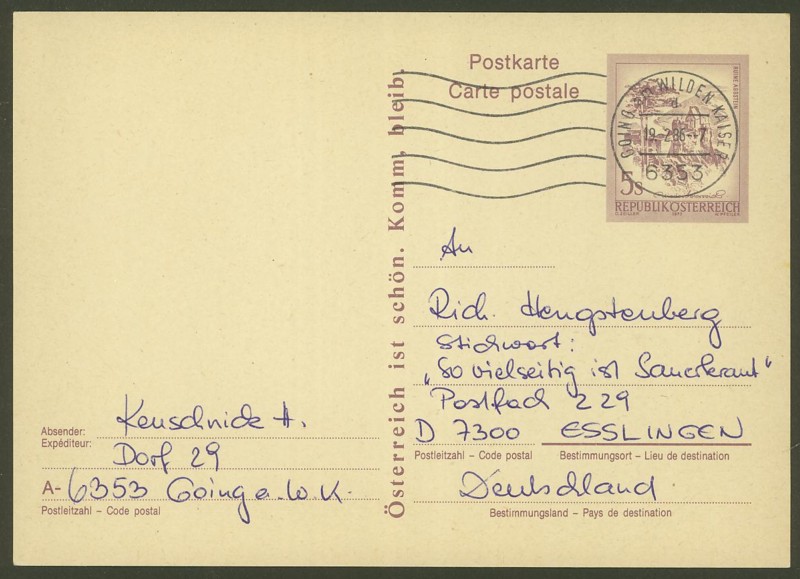 Postkarte
Carte postale
RUINE AGGSTEIN
GOING AM WILDEN KAISER
19.-2.86--7
6353
5s
REPUBLIK ÖSTERREICH
Österreich ist schön. Komm, bleib.
An
Rich. Hengstenberg
Stichwort:
„So vielseitig ist Sauerkraut"
Postfach 229
D 7300 ESSLINGEN
Postleitzahl – Code postal Bestimmungsort – Lieu de destination
Deutschland
Bestimmungsland – Pays de destination
Absender:
Expéditeur:
Keuschnick H.
Dorf 29
A- 6353 Going a. W. K.
Postleitzahl – Code postal